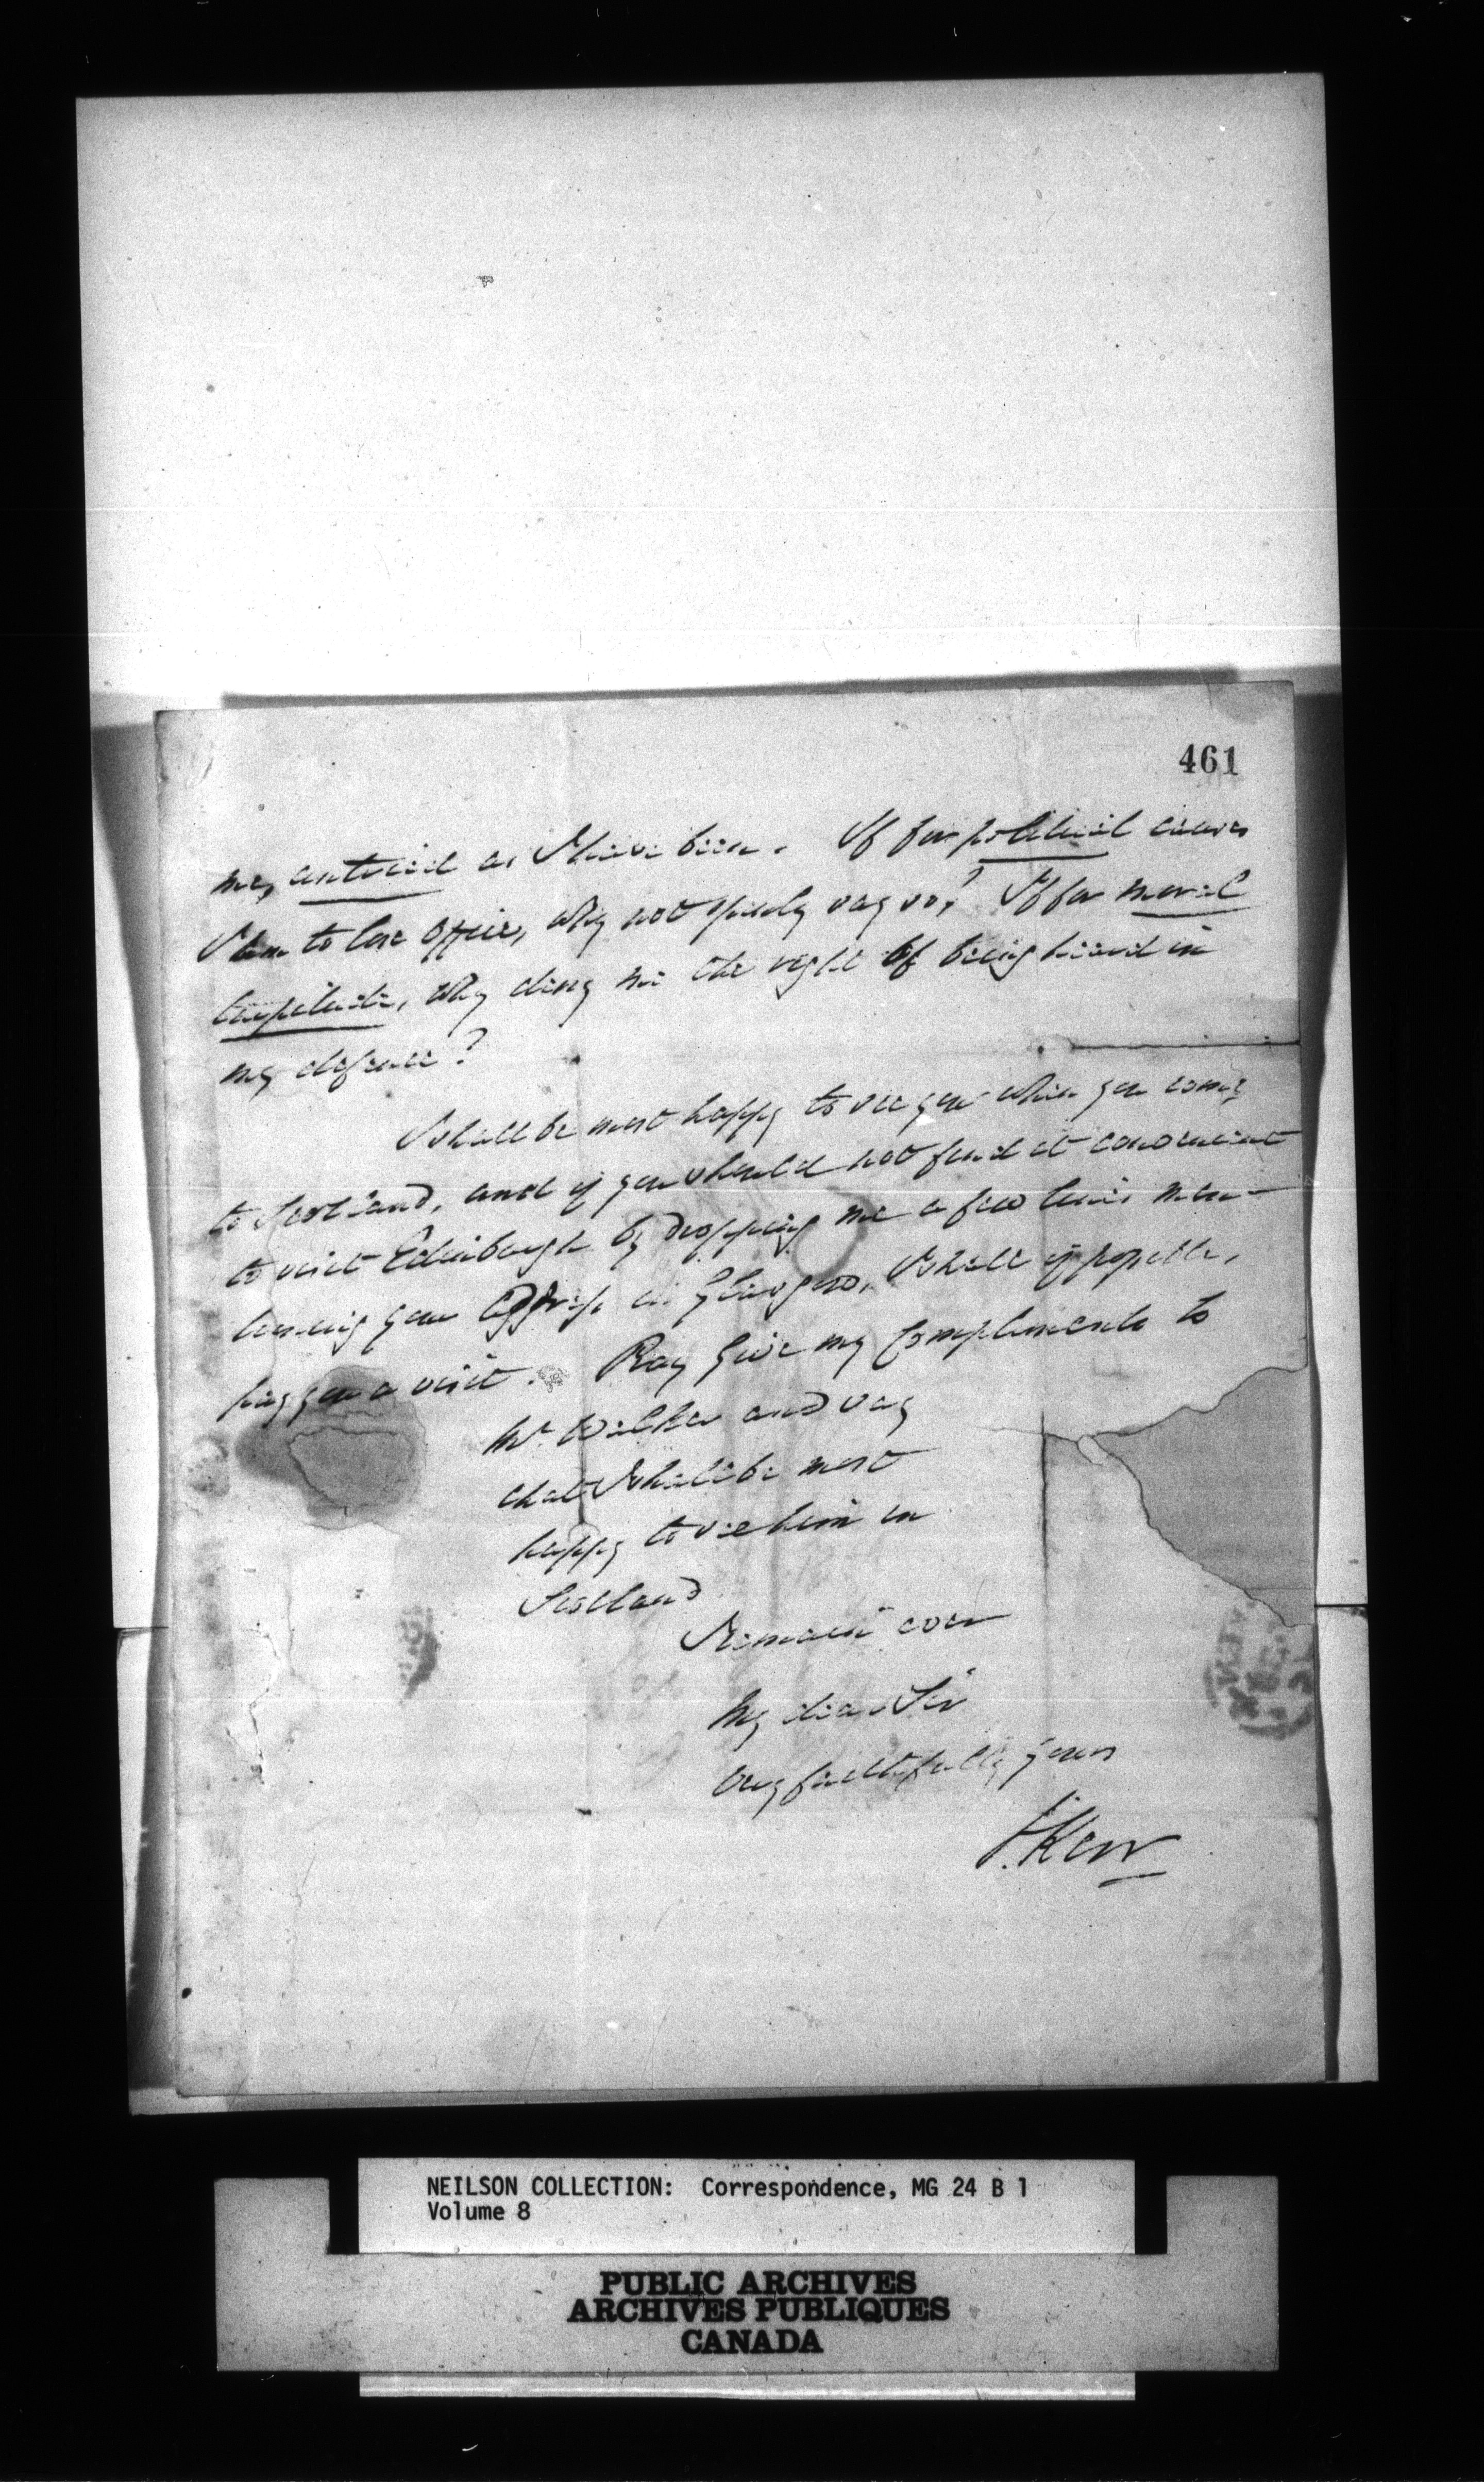 461
me, untried as I have been. If for political causes
I am to lose office, why not openly say so? If for moral
turpitude, why deny me the right of being heard in
my defence?
I shall be most happy to see you when you come
to Scotland, and if you should not find it convenient
to visit Edinburgh by dropping me a few lines men-
tioning your address in Glasgow, I shall if possible,
pay you a visit. Pray give my Compliments to
Mr. Walker and say
that I shall be most
happy to see him in
Scotland
I remain ever
My dear Sir
Very faithfully yours
J. Kerr
NEILSON COLLECTION: Correspondence, MG 24 B 1
Volume 8
PUBLIC ARCHIVES
ARCHIVES PUBLIQUES
CANADA